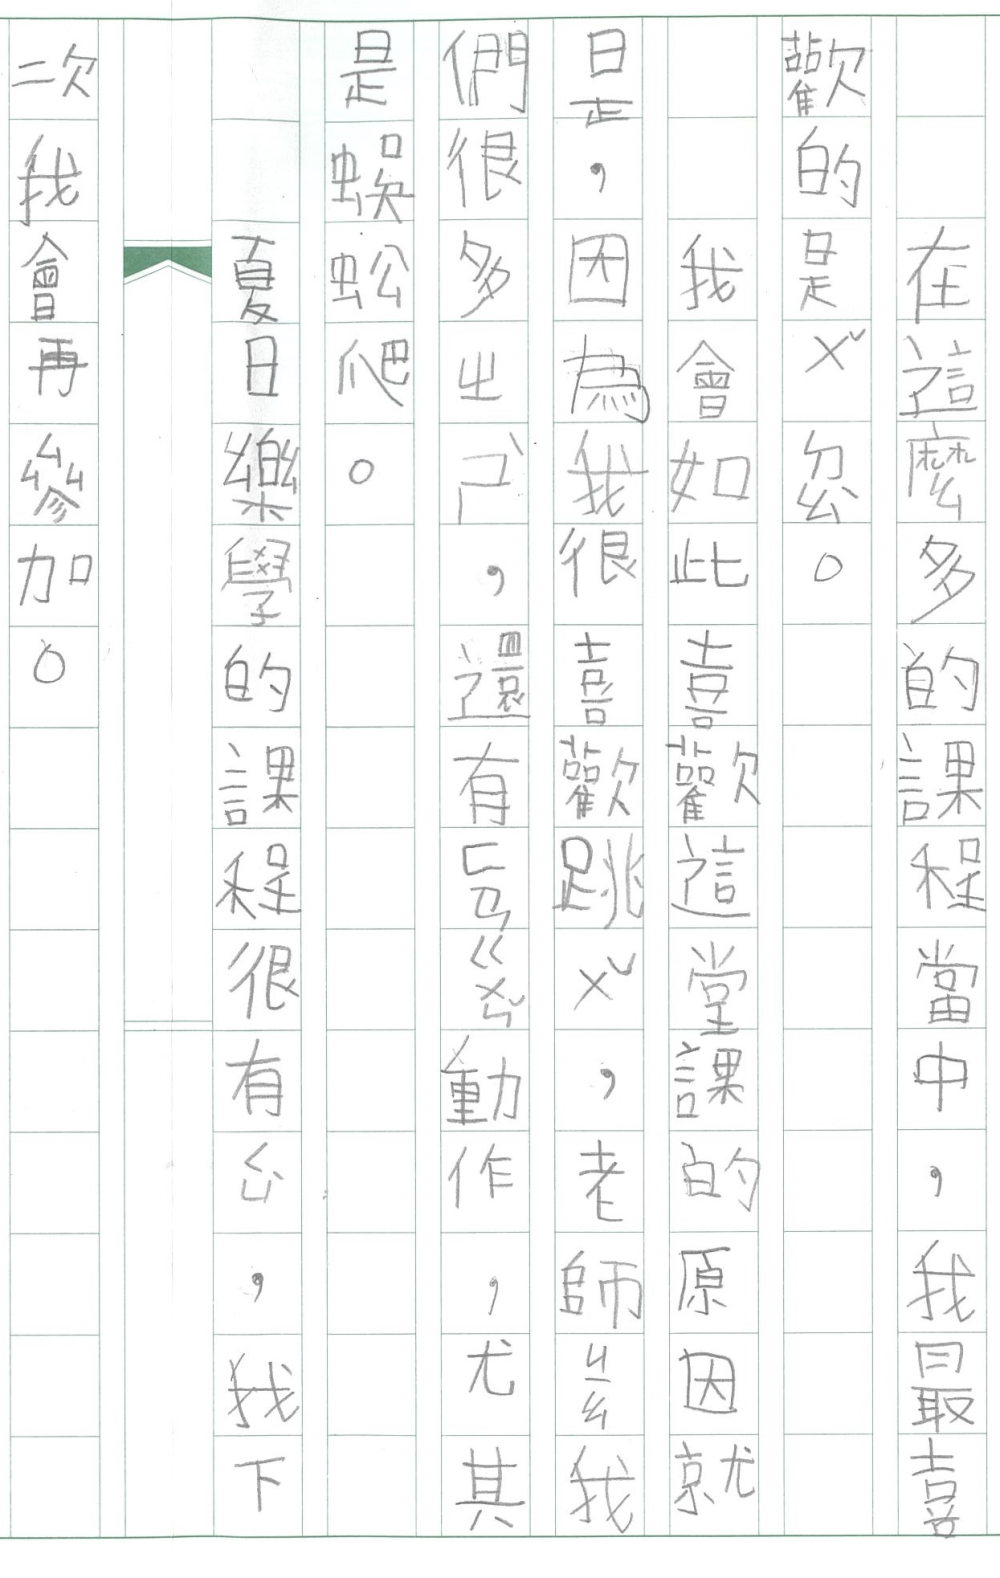 在這麼多的課程當中，我最喜
歡的是ㄨˇ忿。
我會如此喜歡這堂課的原因就
是，因為我很喜歡跳ㄨˇ，老師ㄐㄧㄠ我
們很多ㄓㄕ，還有ㄈㄢㄍㄨㄣˇ動作，尤其
是蜈蚣爬。
夏日樂學的課程很有ㄙ，我下
二次我會再參加。